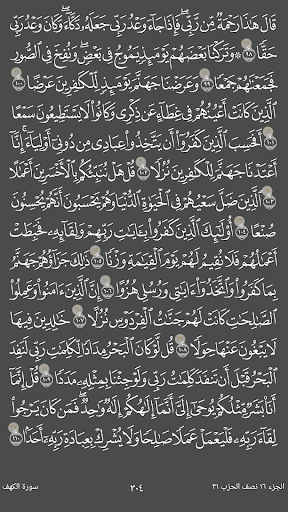 قَالَ هَٰذَا رَحْمَةٌ مِّن رَّبِّي ۖ فَإِذَا جَاءَ وَعْدُ رَبِّي جَعَلَهُۥ دَكَّاءَ ۖ وَكَانَ وَعْدُ رَبِّي
حَقًّا ٩٨ ۞ وَتَرَكْنَا بَعْضَهُمْ يَوْمَئِذٍ يَمُوجُ فِي بَعْضٍ ۖ وَنُفِخَ فِي الصُّورِ
فَجَمَعْنَاهُمْ جَمْعًا ٩٩ وَعَرَضْنَا جَهَنَّمَ يَوْمَئِذٍ لِّلْكَافِرِينَ عَرْضًا ١٠٠
الَّذِينَ كَانَتْ أَعْيُنُهُمْ فِي غِطَاءٍ عَن ذِكْرِي وَكَانُوا لَا يَسْتَطِيعُونَ سَمْعًا
١٠١ أَفَحَسِبَ الَّذِينَ كَفَرُوا أَن يَتَّخِذُوا عِبَادِي مِن دُونِي أَوْلِيَاءَ ۚ إِنَّا
أَعْتَدْنَا جَهَنَّمَ لِلْكَافِرِينَ نُزُلًا ١٠٢ قُلْ هَلْ نُنَبِّئُكُم بِالْأَخْسَرِينَ أَعْمَالًا
١٠٣ الَّذِينَ ضَلَّ سَعْيُهُمْ فِي الْحَيَوٰةِ الدُّنْيَا وَهُمْ يَحْسَبُونَ أَنَّهُمْ يُحْسِنُونَ
صُنْعًا ١٠٤ أُولَٰئِكَ الَّذِينَ كَفَرُوا بِآيَاتِ رَبِّهِمْ وَلِقَائِهِۦ فَحَبِطَتْ
أَعْمَالُهُمْ فَلَا نُقِيمُ لَهُمْ يَوْمَ الْقِيَامَةِ وَزْنًا ١٠٥ ذَٰلِكَ جَزَاؤُهُمْ جَهَنَّمُ
بِمَا كَفَرُوا وَاتَّخَذُوا آيَاتِي وَرُسُلِي هُزُوًا ١٠٦ إِنَّ الَّذِينَ آمَنُوا وَعَمِلُوا
الصَّالِحَاتِ كَانَتْ لَهُمْ جَنَّاتُ الْفِرْدَوْسِ نُزُلًا ١٠٧ خَالِدِينَ فِيهَا
لَا يَبْغُونَ عَنْهَا حِوَلًا ١٠٨ قُل لَّوْ كَانَ الْبَحْرُ مِدَادًا لِّكَلِمَاتِ رَبِّي لَنَفِدَ
الْبَحْرُ قَبْلَ أَن تَنفَدَ كَلِمَاتُ رَبِّي وَلَوْ جِئْنَا بِمِثْلِهِۦ مَدَدًا ١٠٩ قُلْ إِنَّمَا
أَنَا بَشَرٌ مِّثْلُكُمْ يُوحَىٰ إِلَيَّ أَنَّمَا إِلَٰهُكُمْ إِلَٰهٌ وَاحِدٌ ۖ فَمَن كَانَ يَرْجُوا
لِقَاءَ رَبِّهِۦ فَلْيَعْمَلْ عَمَلًا صَالِحًا وَلَا يُشْرِكْ بِعِبَادَةِ رَبِّهِۦ أَحَدًا ١١٠
الجزء ١٦ نصف الحزب ٣١ ٣٠٤ سورة الكهف